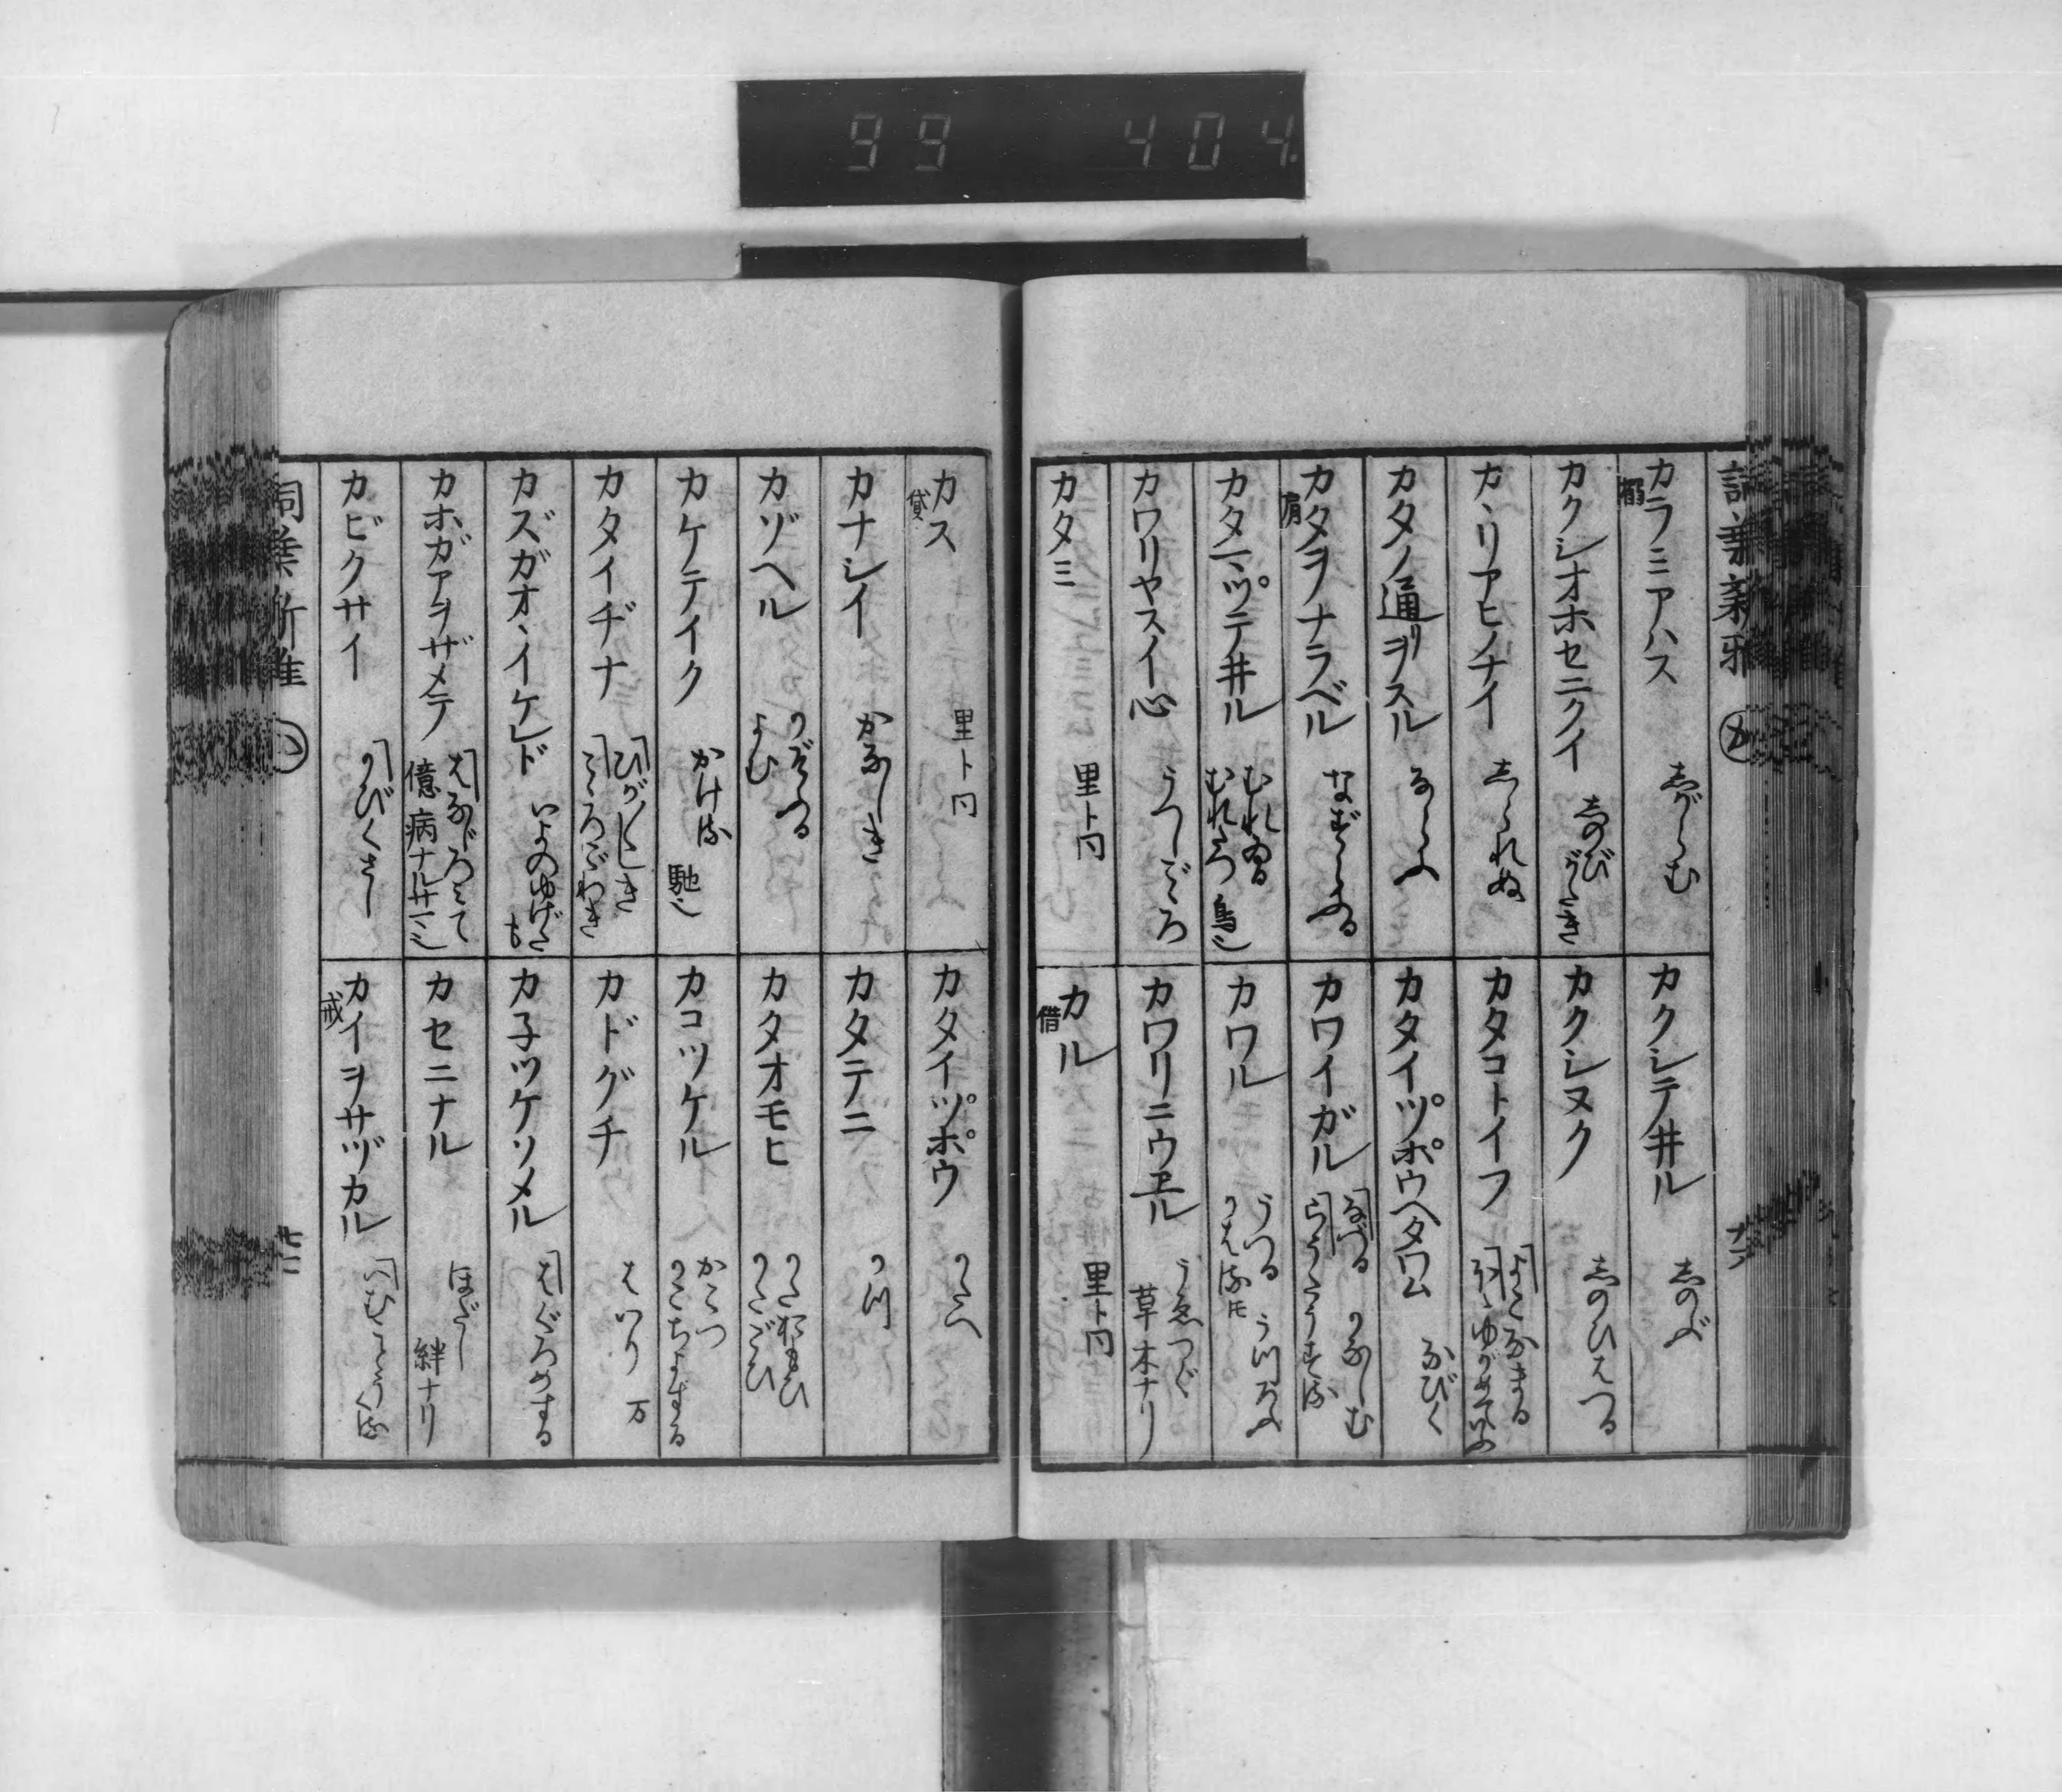 99 404
カラミアハス 搦 しがらむ
カクシオホセニクイ しのびがたき
カヽリアヒノナイ しられぬ
カタノ通リヲスル ならふ
カタヲナラベル 肩 なずらふる
カターツテ井ル むれゐる むれたつ 鳥ニ
カワリヤスイ心 うつしごころ
カタミ 里ト同
カクシテ井ル しのぶ
カクシヌク しのびはつる
カタコトイフ
カタイツポウヘタワム なびく
カワイガル
カワル うつる うつろふ
カワリニウヱル うゑつぐ 草木ナリ
カル 借 里ト同
カス 貸 里ト同
カナシイ かなしき
カゾヘル かぞふる よむ
カケテイク かける 馳ニ
カタイヂナ ひがひがしき こころごわき
カズガオヽイケレド いよのゆげたも
カホガアヲザメテ はなじろみて 億病ナルサマニ
カビクサイ かびくさし
カタイツポウ かたへ
カタテニ かつ
カタオモヒ かたおもひ かたごひ
カコツケル かこつ かこちよする
カドグチ はいり 万
カ子ツケソメル はぐろめする
カセニナル ほだし 絆ナリ
カイヲサヅカル 戒 いむことうくる
詞葉新雅